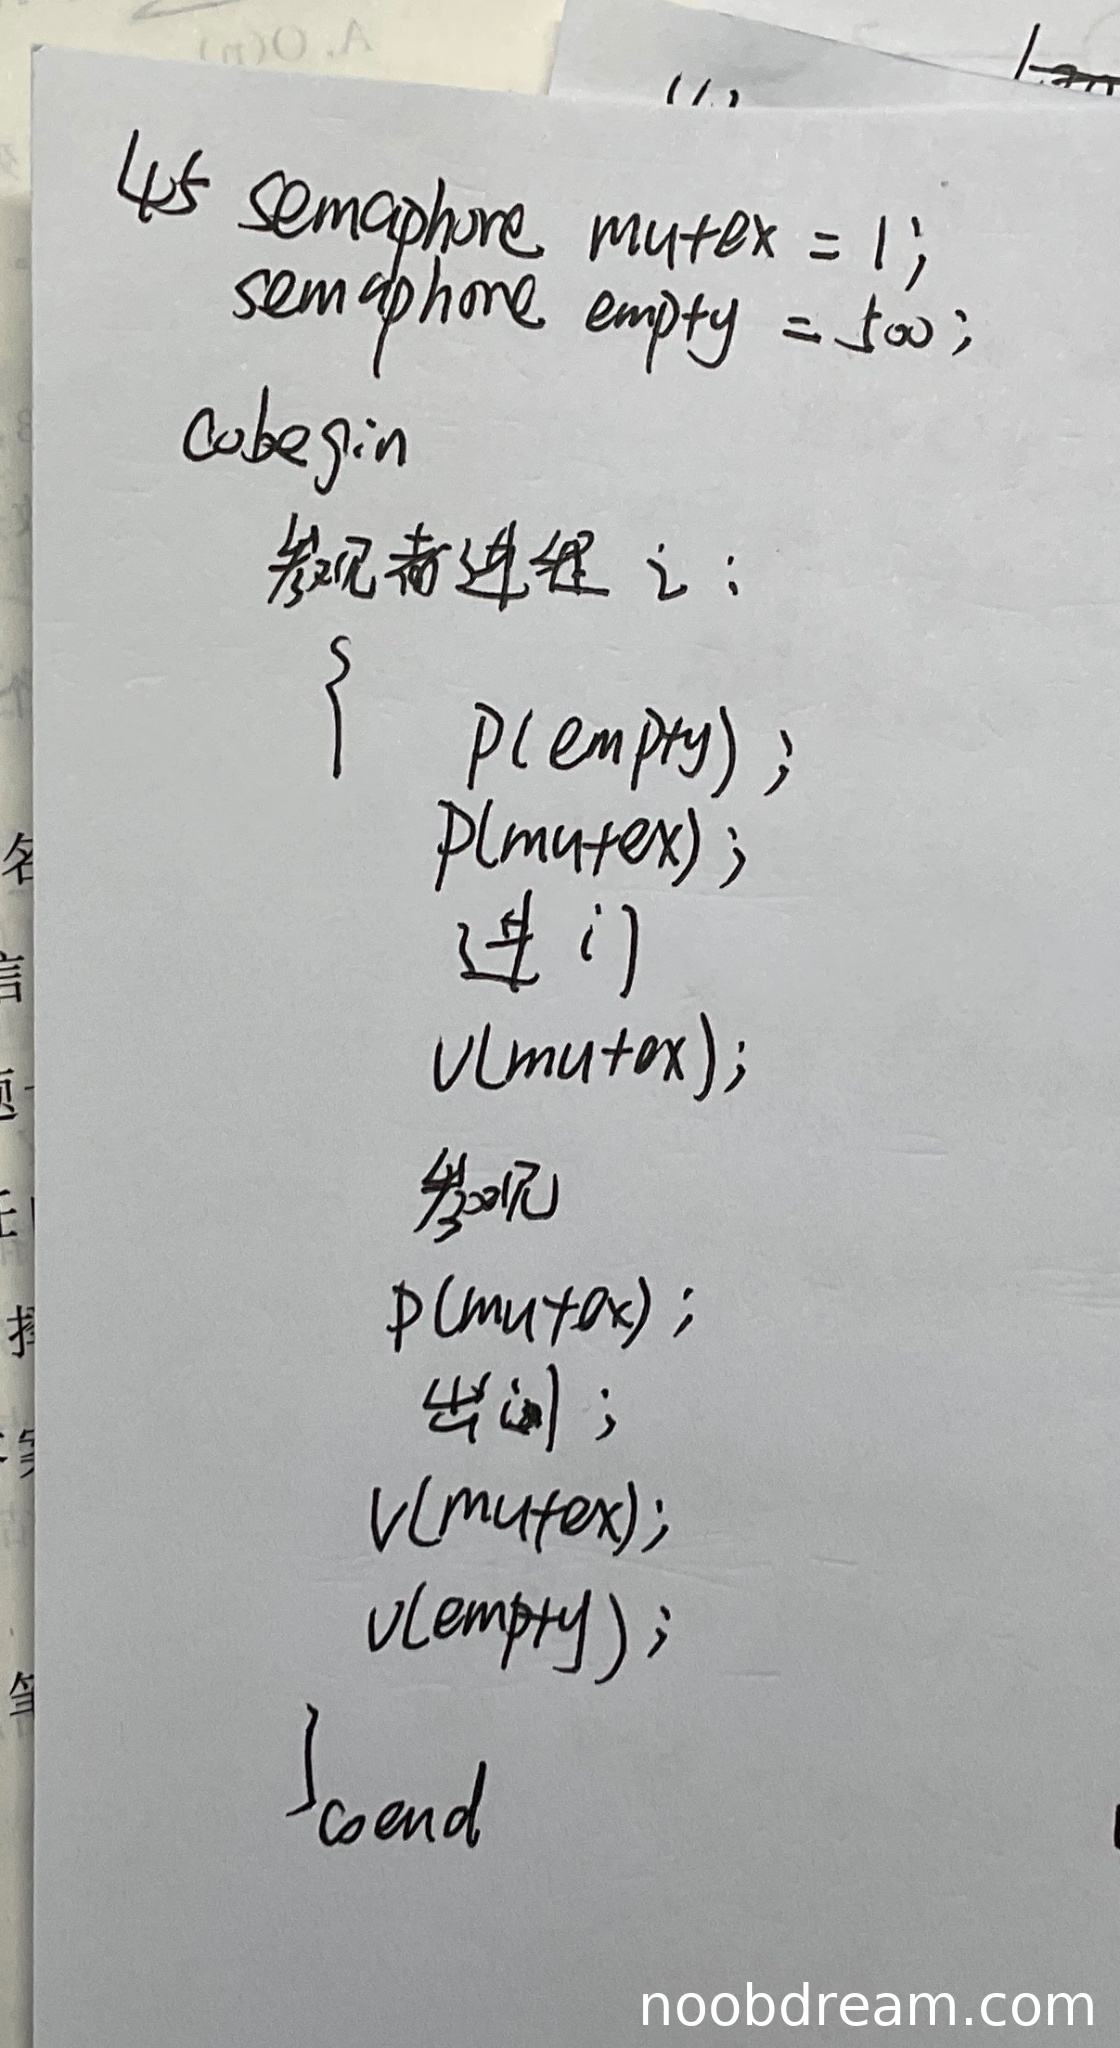 A. O(n)
45 semaphore mutex = 1;
semaphore empty = 500;
cobegin
参观者进程 i :
{
P(empty) ;
P(mutex) ;
进门
V(mutex);
参观
P(mutex) ;
出门 ;
V(mutex);
V(empty) ;
}
coend
名
信
题
择
noobdream.com